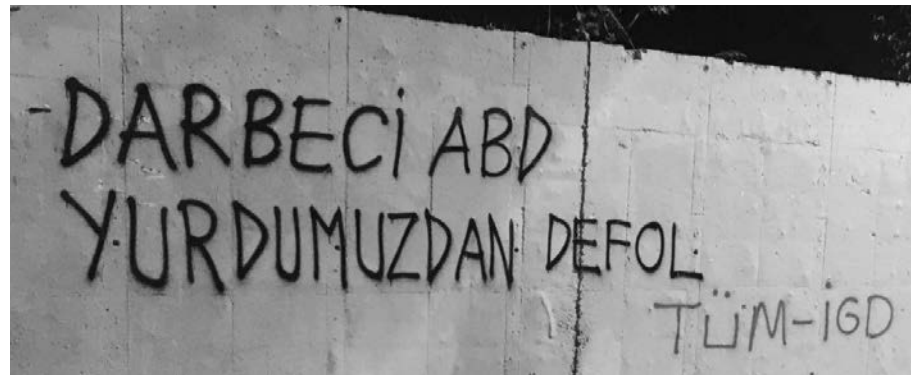 -DARBECİ ABD
YURDUMUZDAN DEFOL
TÜM-İGD